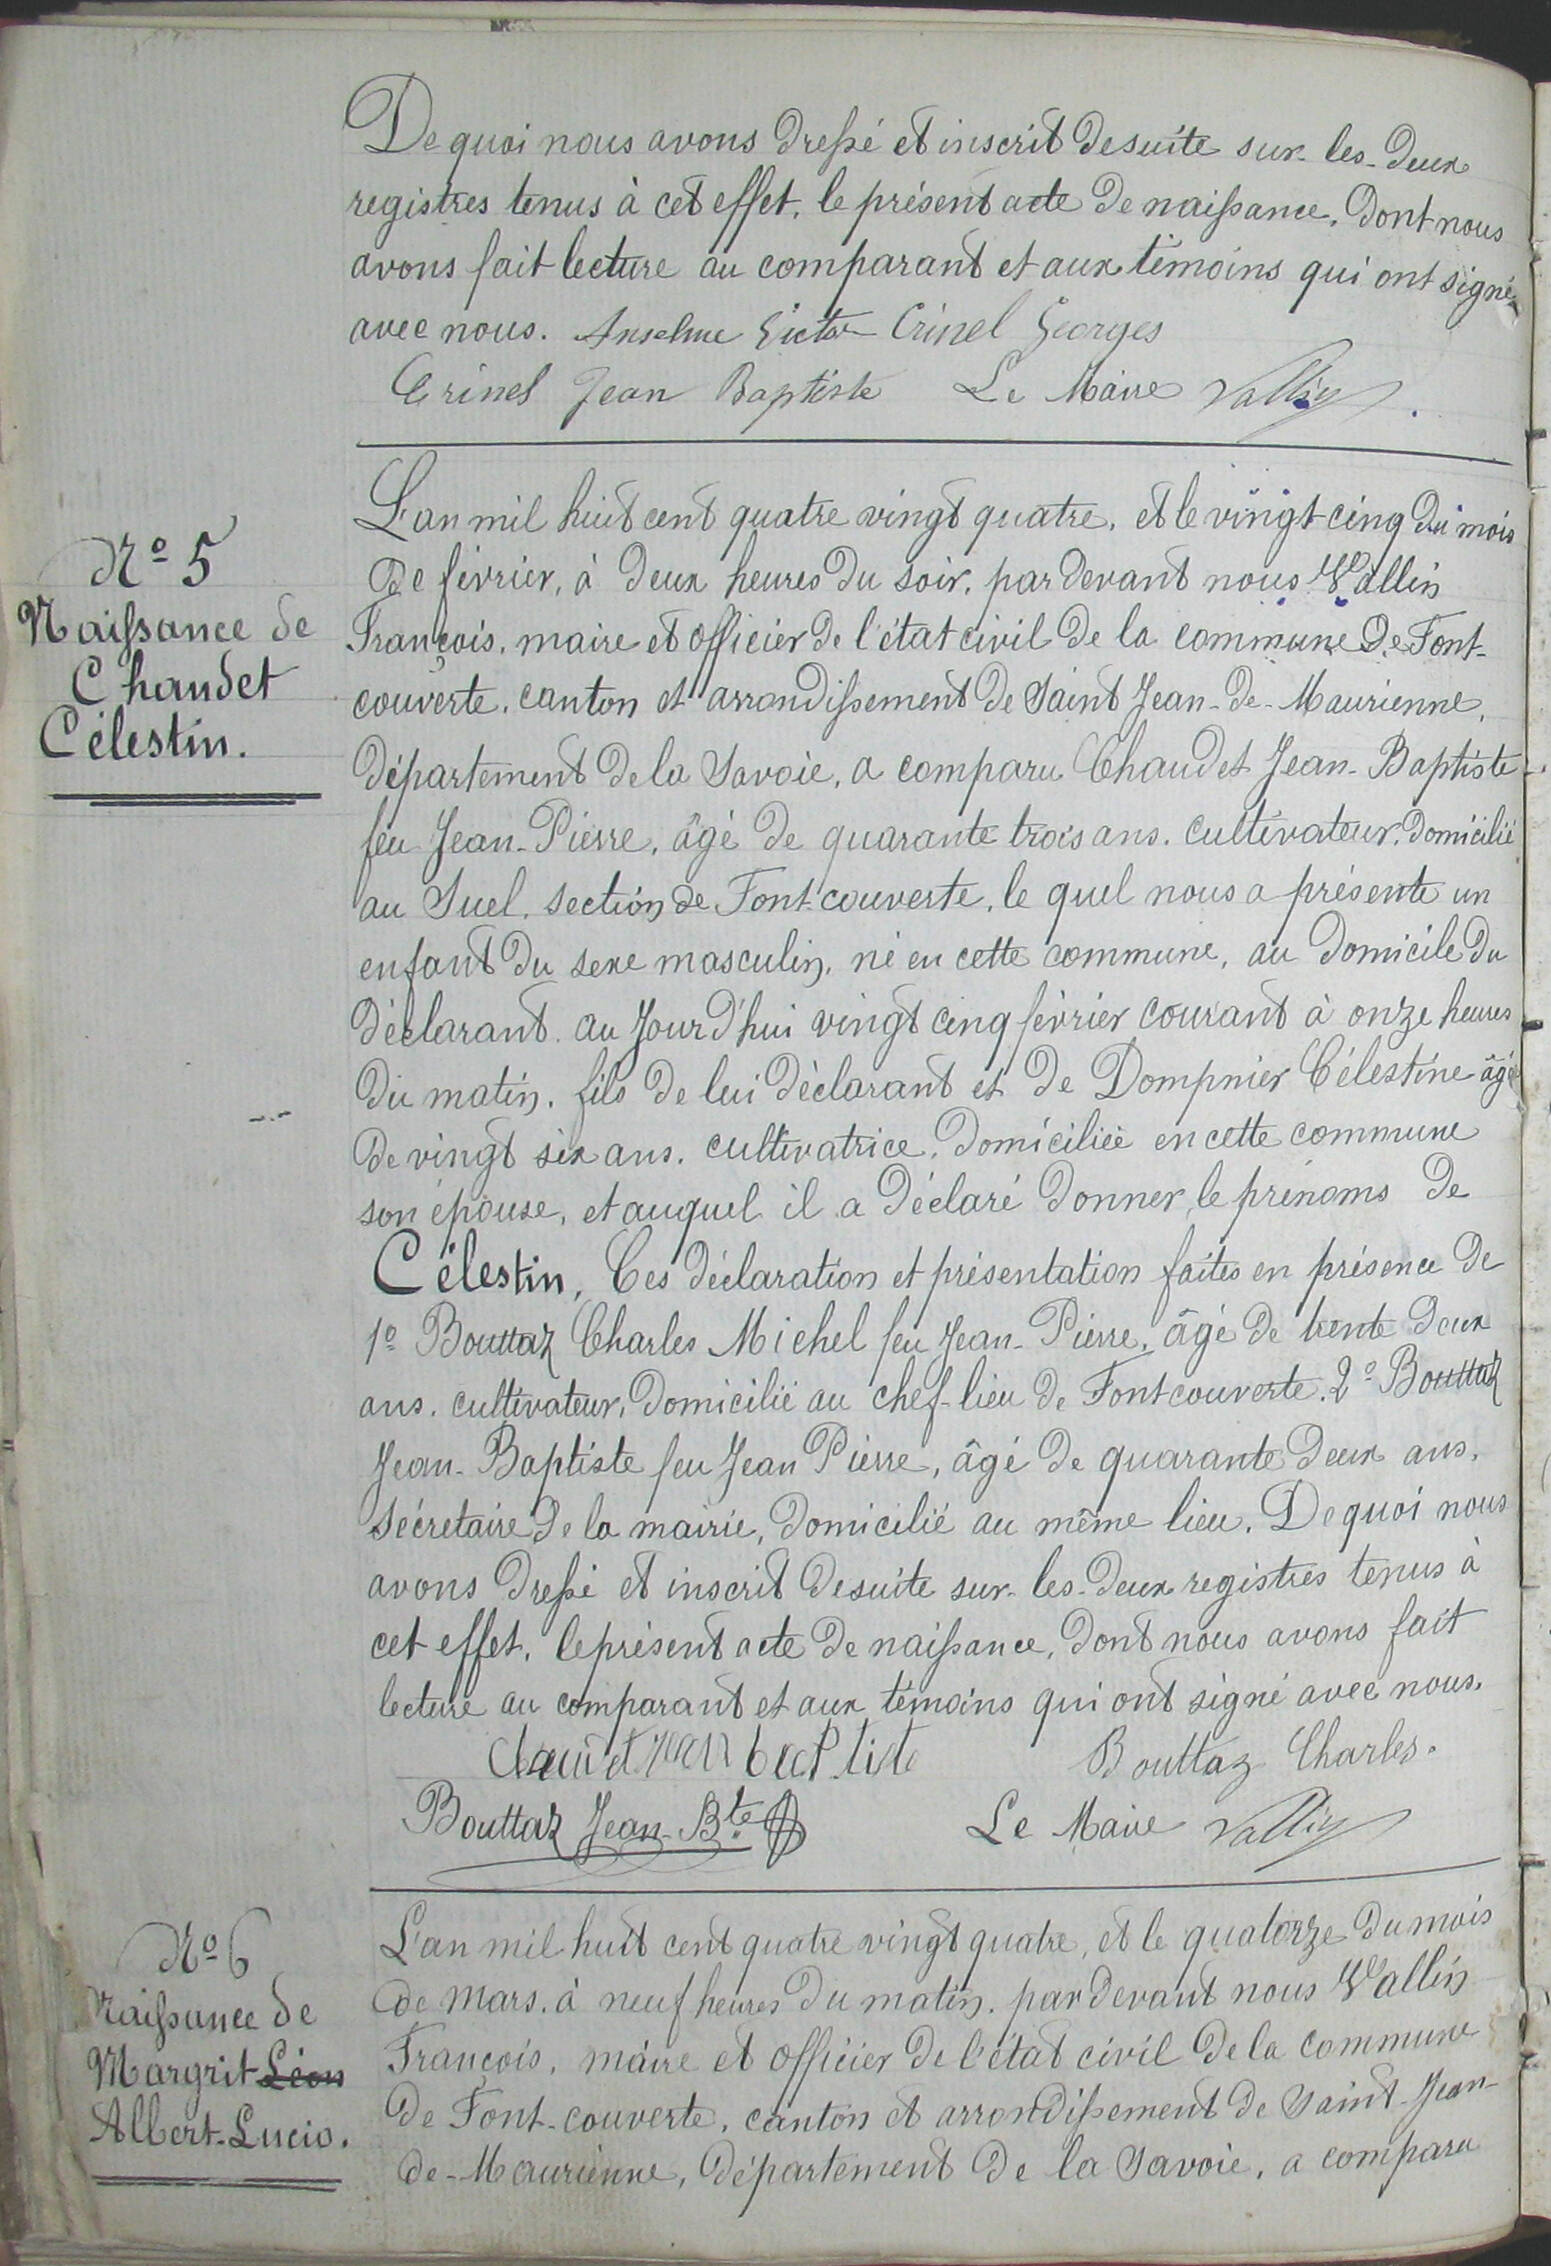 De quoi nous avons dressé et inscrit desuite sur les deux
registres tenus à cet effet, le présent acte de naissance, dont nous
avons fait lecture au comparant et aux témoins qui ont signé
avec nous. Anselme Victor Crinel Georges
Crinel Jean Baptiste Le Maire Vallin
N° 5
Naissance de
Chaudet
Célestin.
L'an mil huit cent quatre vingt quatre, et le vingt-cinq du mois
de février, à deux heures du soir, par devant nous Vallin
François, maire et officier de l'état civil de la commune de Font-
couverte, canton et arrondissement de Saint Jean-de-Maurienne,
département de la Savoie, a comparu Chaudet Jean-Baptiste
feu Jean-Pierre, âgé de quarante trois ans, cultivateur, domicilié
au Suel, section de Fontcouverte, le quel nous a présenté un
enfant du sexe masculin, né en cette commune, au domicile du
déclarant, au jour d'hui vingt cinq février courant à onze heures
du matin, fils de lui déclarant et de Dompnier Célestine âgé
de vingt six ans, cultivatrice, domiciliée en cette commune
son épouse, et auquel il a déclaré donner le prénoms de
Célestin, Ces déclaration et présentation faites en présence de
1° Bouttaz Charles Michel feu Jean-Pierre, âgé de trente deux
ans, cultivateur, domicilié au chef-lieu de Fontcouverte. 2° Bouttaz
Jean-Baptiste feu Jean Pierre, âgé de quarante deux ans,
sécretaire de la mairie, domicilié au même lieu. De quoi nous
avons dressé et inscrit desuite sur les deux registres tenus à
cet effet, le présent acte de naissance, dont nous avons fait
lecture au comparant et aux témoins qui ont signé avec nous.
Chaudet jean baptiste Bouttaz Charles.
Bouttaz Jean-Bte Le Maire Vallin
N° 6
Naissance de
Margrit Léon
Albert-Lucio.
L'an mil huit cent quatre vingt quatre, et le quatorze du mois
de mars, à neuf heures du matin, par devant nous Vallin
François, maire et officier de l'état civil de la commune
de Font-couverte, canton et arrondissement de Saint-Jean-
de-Maurienne, département de la Savoie, a comparu